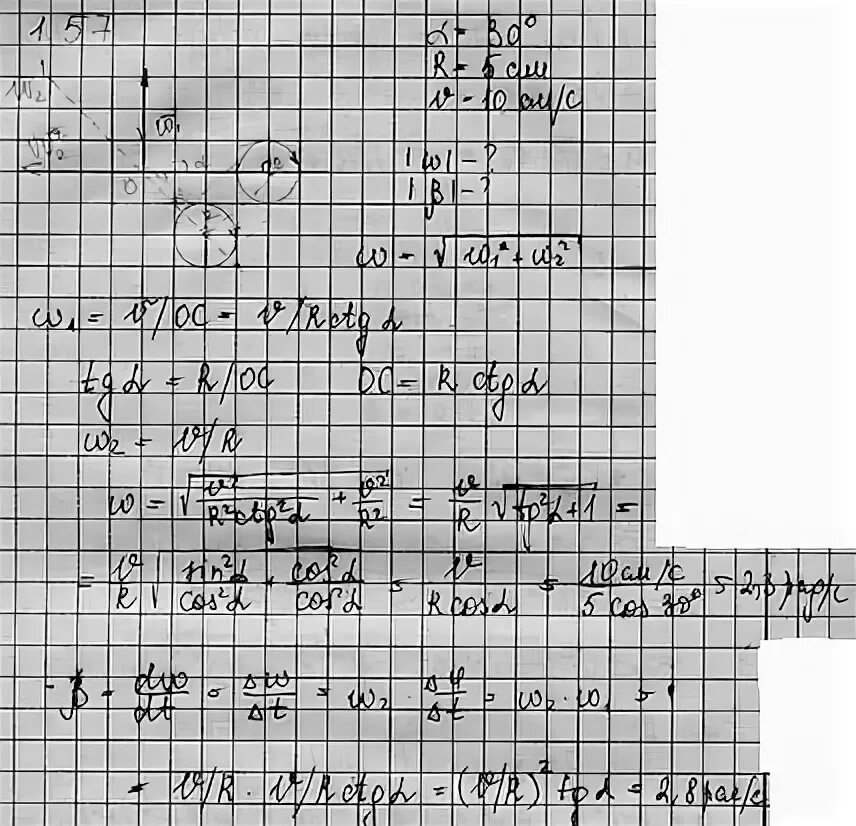 1 57
α = 30°
R = 5 см
v - 10 см/с
|ω| - ?
|β| - ?
ω₂
ω₁
O
α
ω = √ω₁² + ω₂²
ω₁ = v/OC = v/R ctg α
tg α = R/OC OC = R ctg α
ω₂ = v/R
ω = √v²/R² ctg² α + v²/R² = v/R √tg² α + 1 =
= v/R √sin² α/cos² α + cos² α/cos² α = v/R cos α = 10 см/с/5 cos 30° = 2,3 рад/с
β = dω/dt = Δω/Δt = ω₂ · Δφ/Δt = ω₂ · ω₁ =
= v/R · v/R ctg α = (v/R)² tg α = 2,8 рад/с